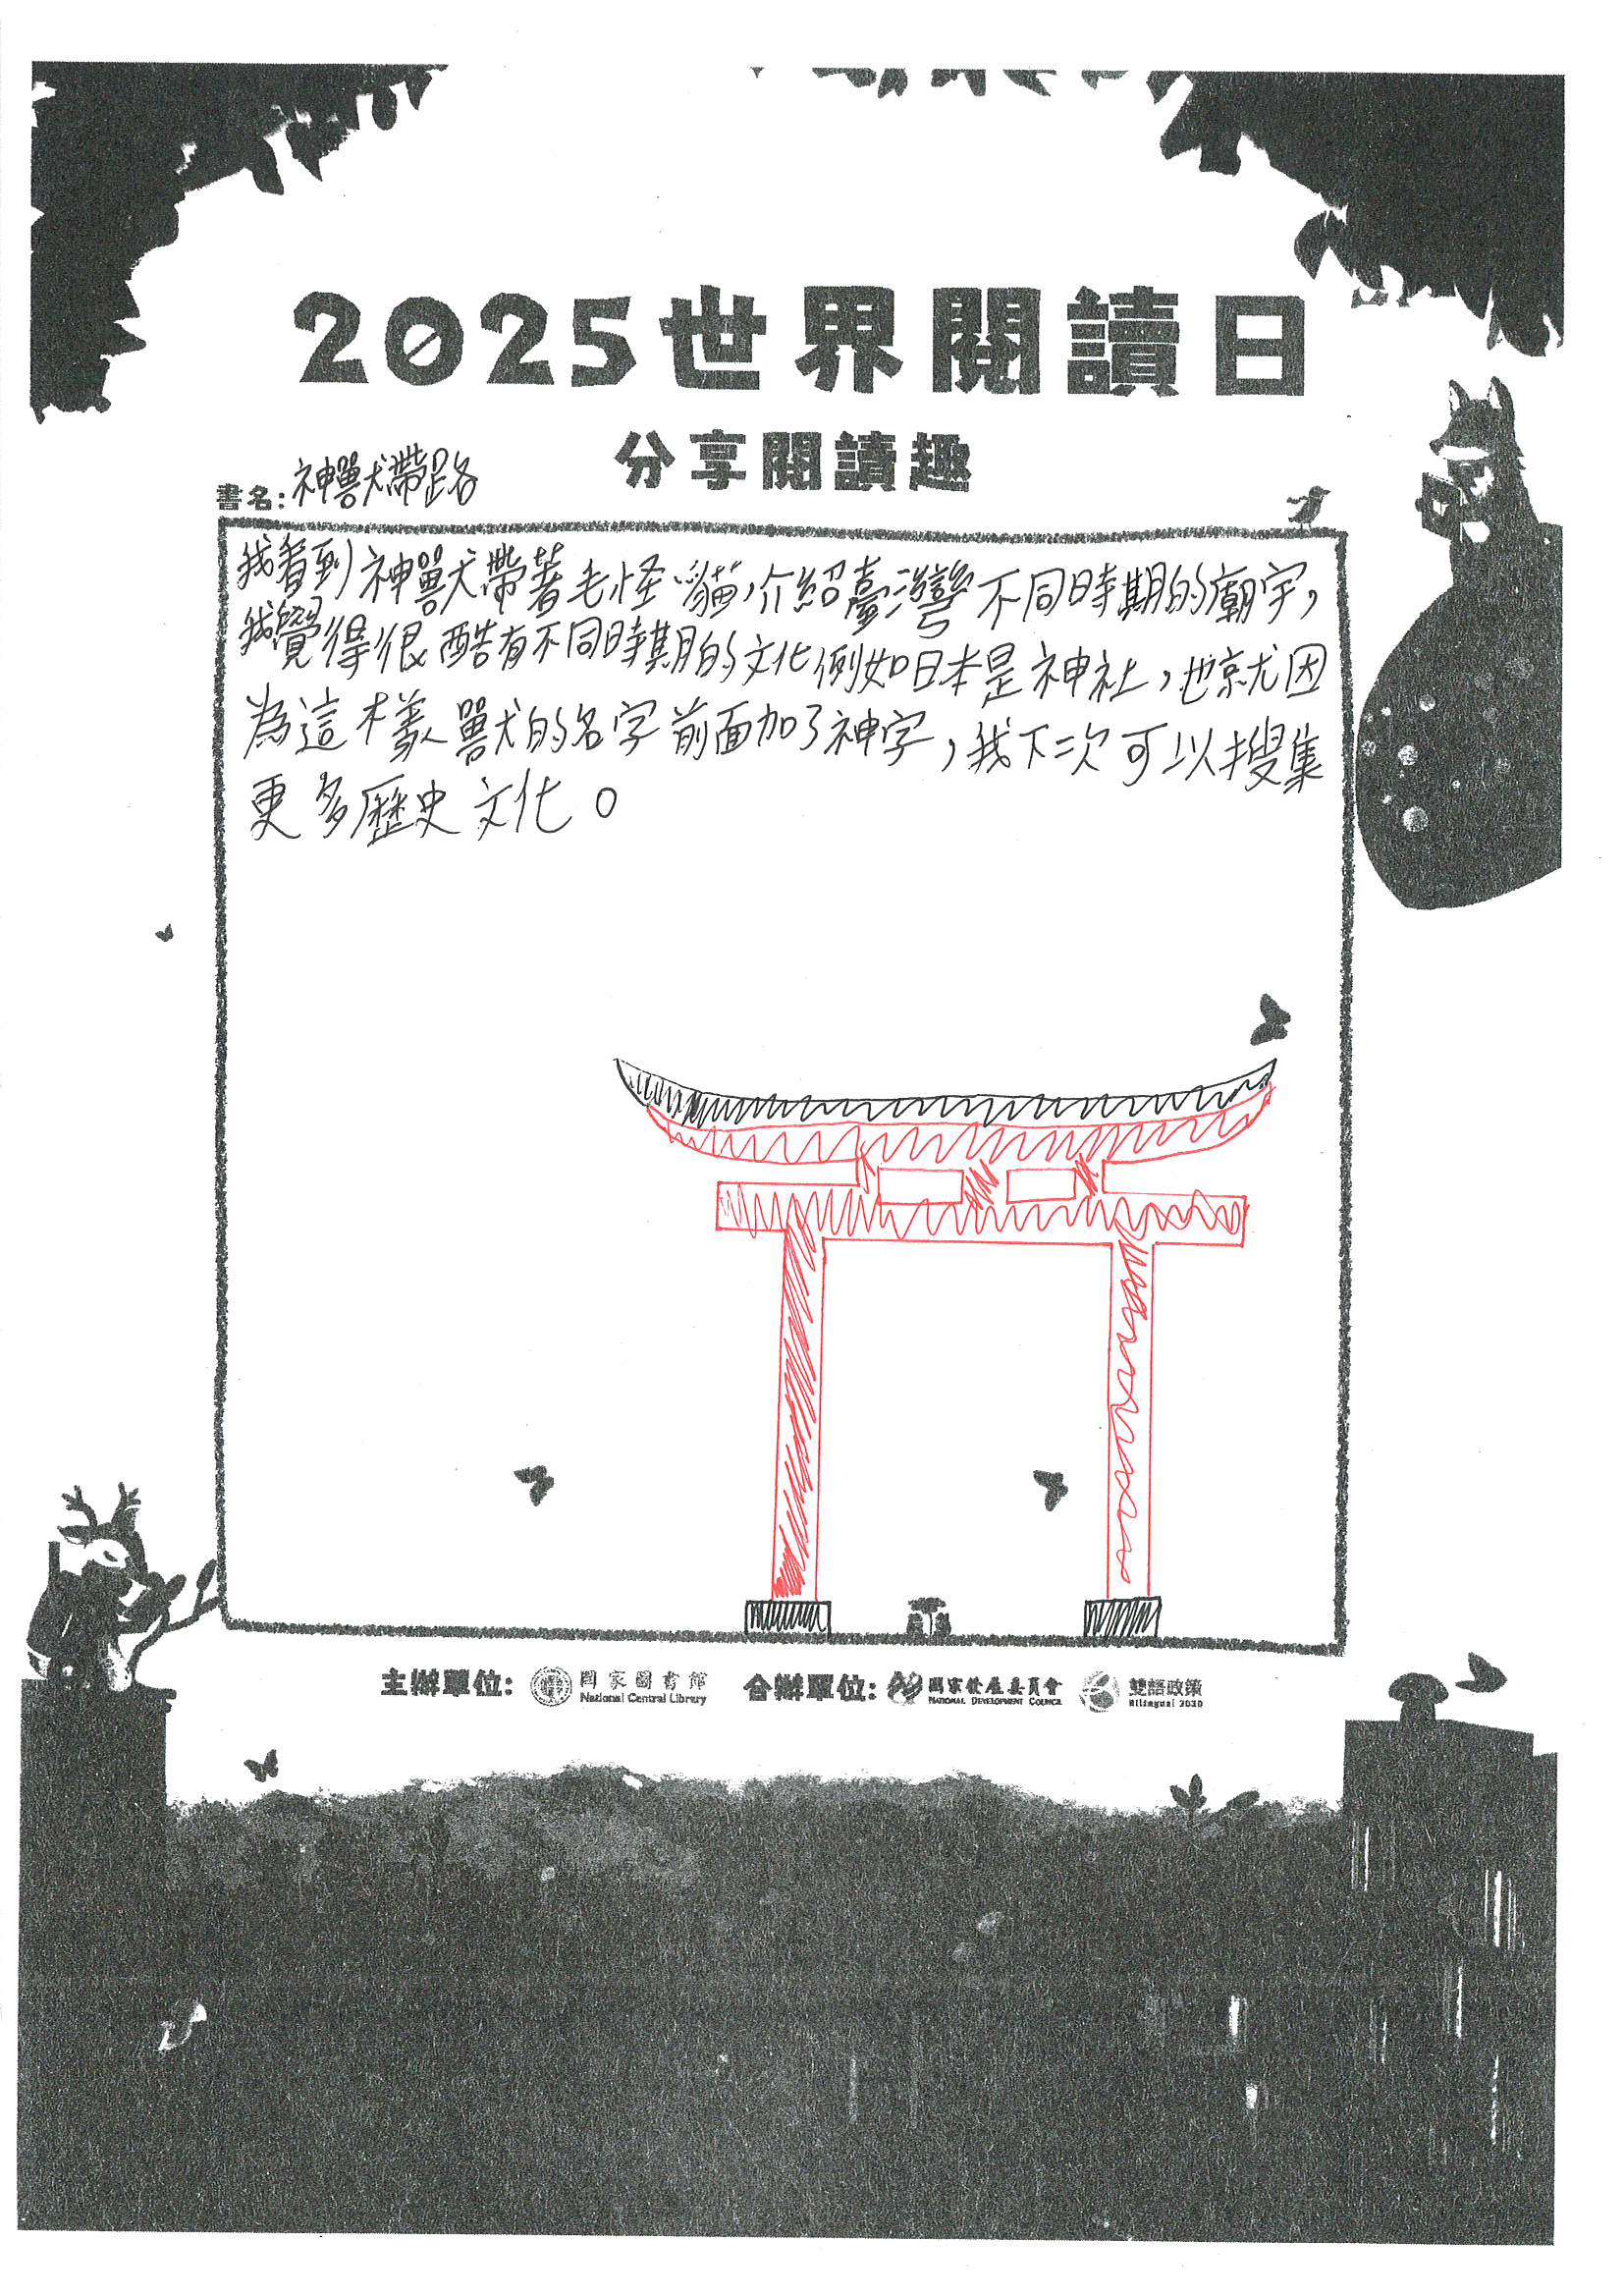 2025世界閱讀日
分享閱讀趣
書名：神獸帶路
我看到神獸帶著毛怪貓，介紹臺灣不同時期的廟宇，
我覺得很酷有不同時期的文化例如日本是神社，也就因
為這樣獸的名字前面加了神字，我下次可以搜集
更多歷史文化。
主辦單位： 國家圖書館 合辦單位： 國家發展委員會 雙語政策
National Central Library NATIONAL DEVELOPMENT COUNCIL Bilingual 2030